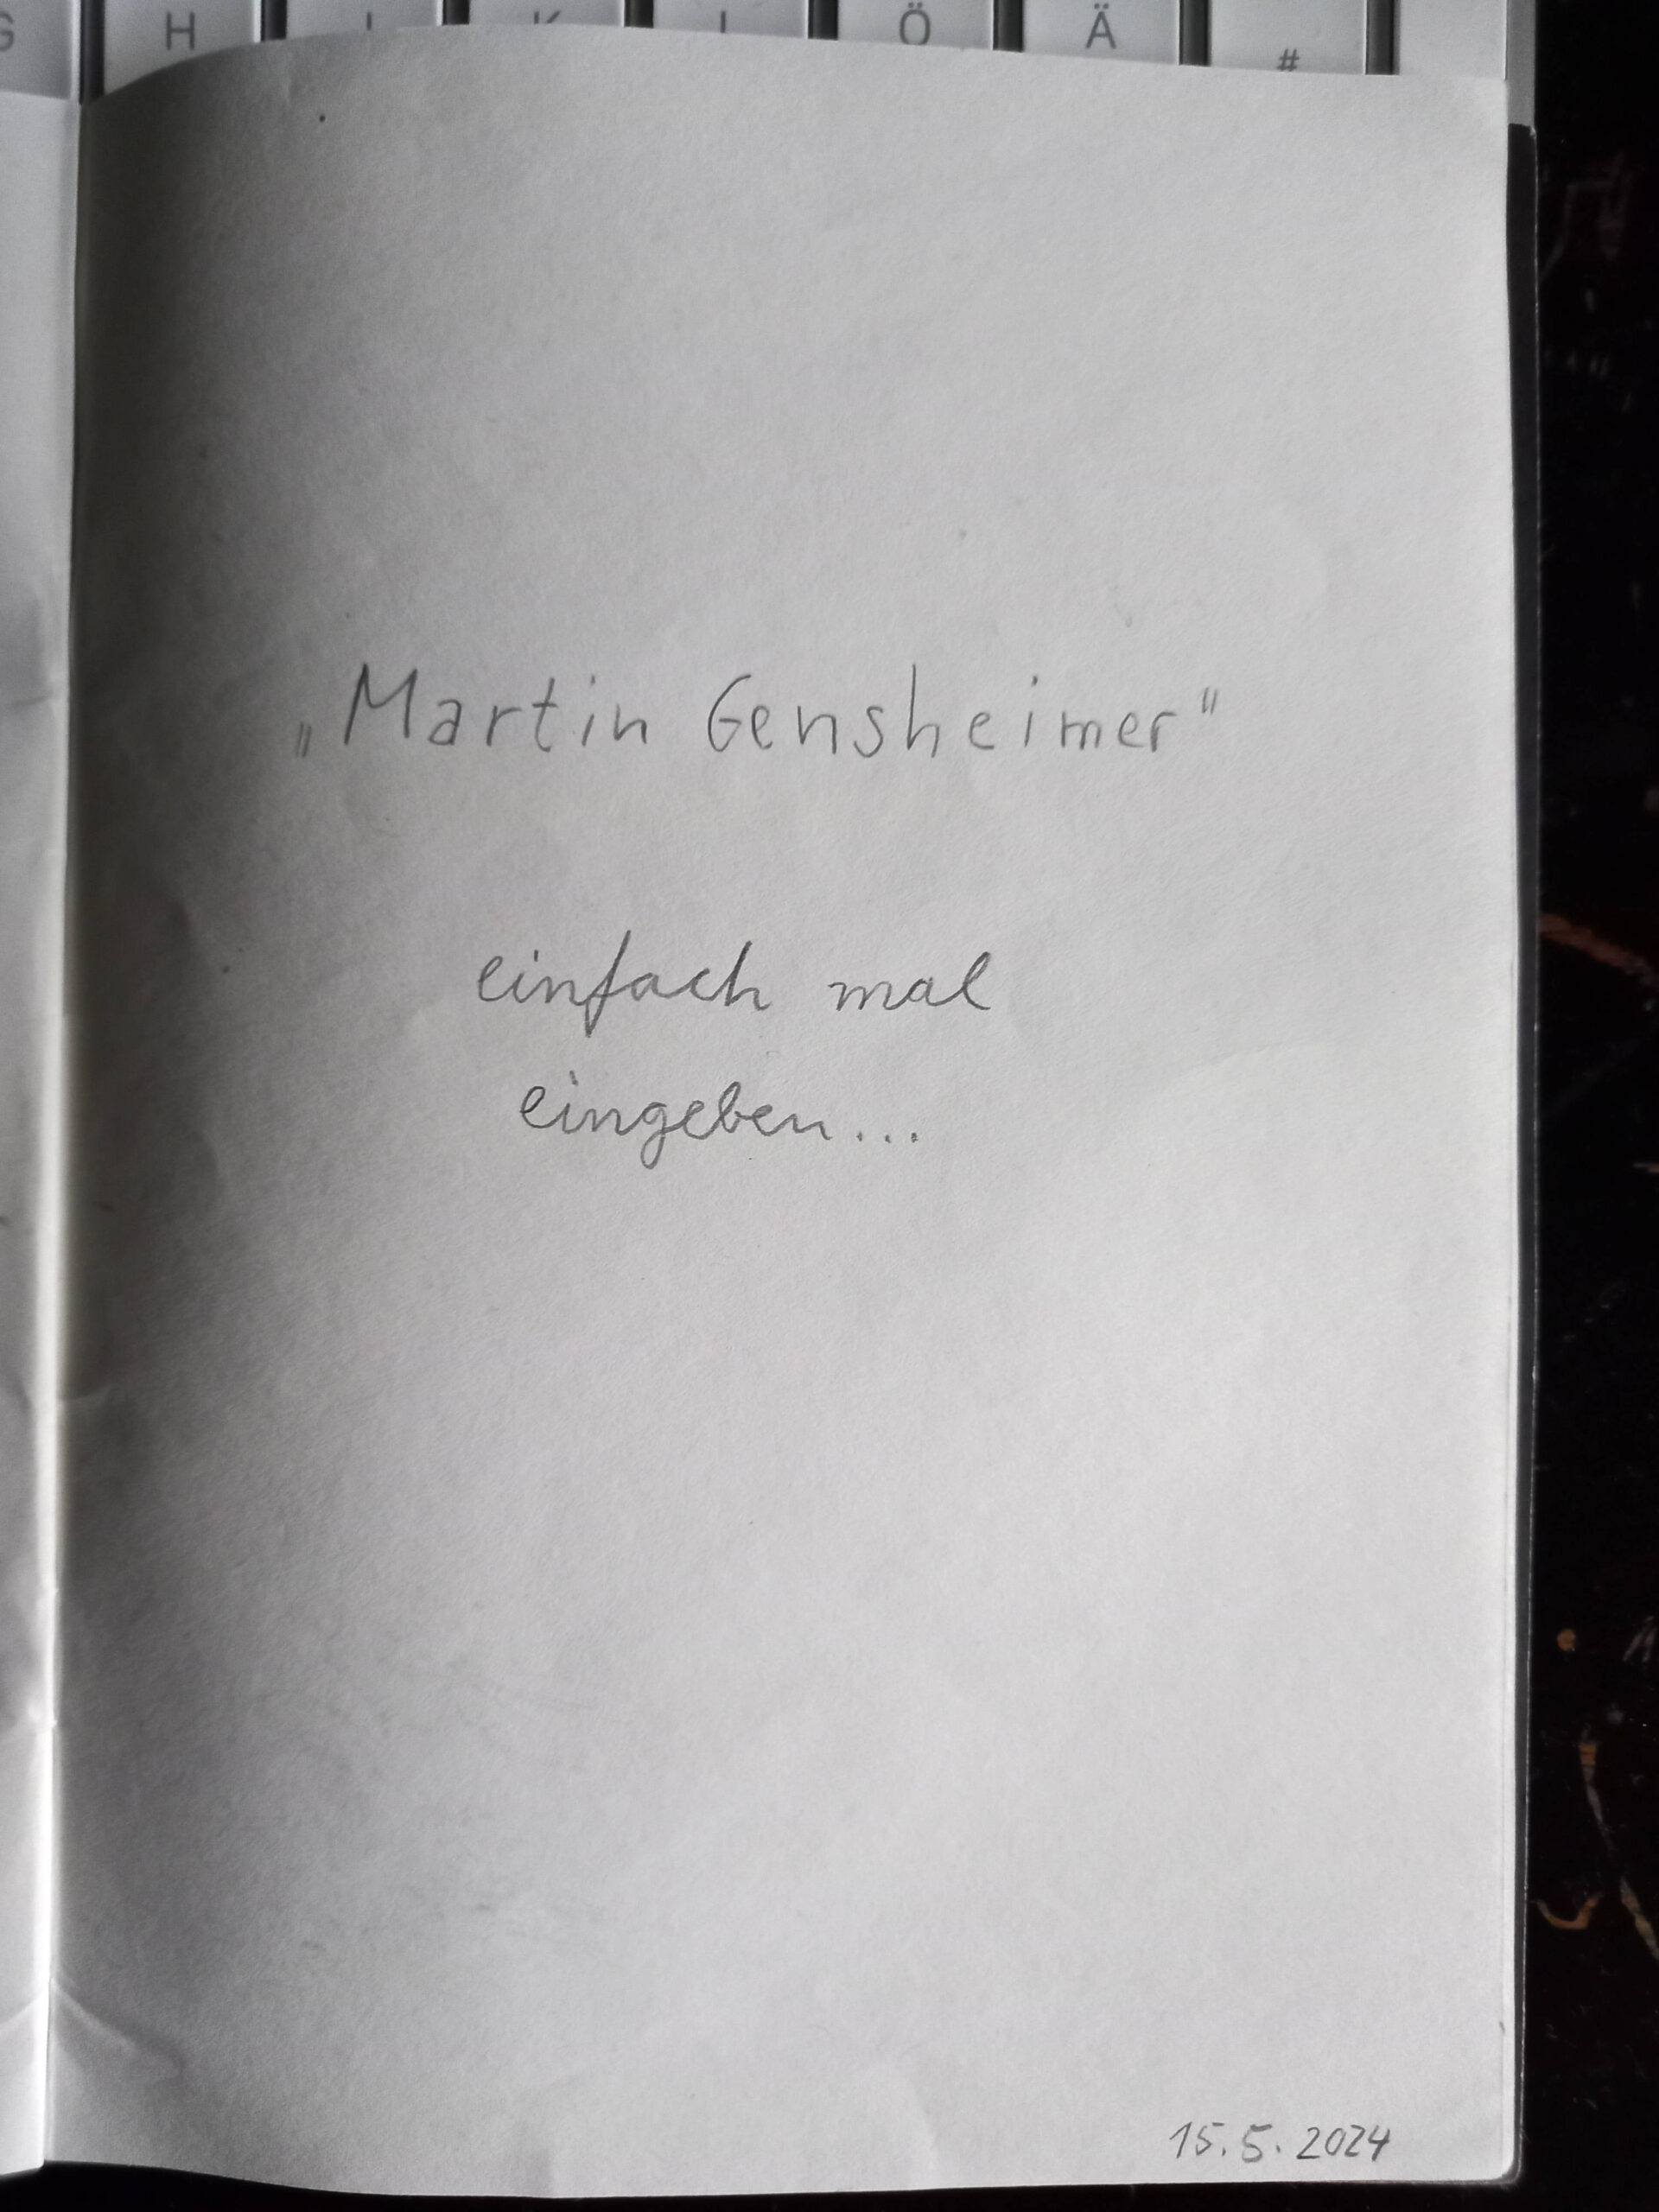 G H J K L Ö Ä #
„Martin Gensheimer"
einfach mal
eingeben...
15.5.2024